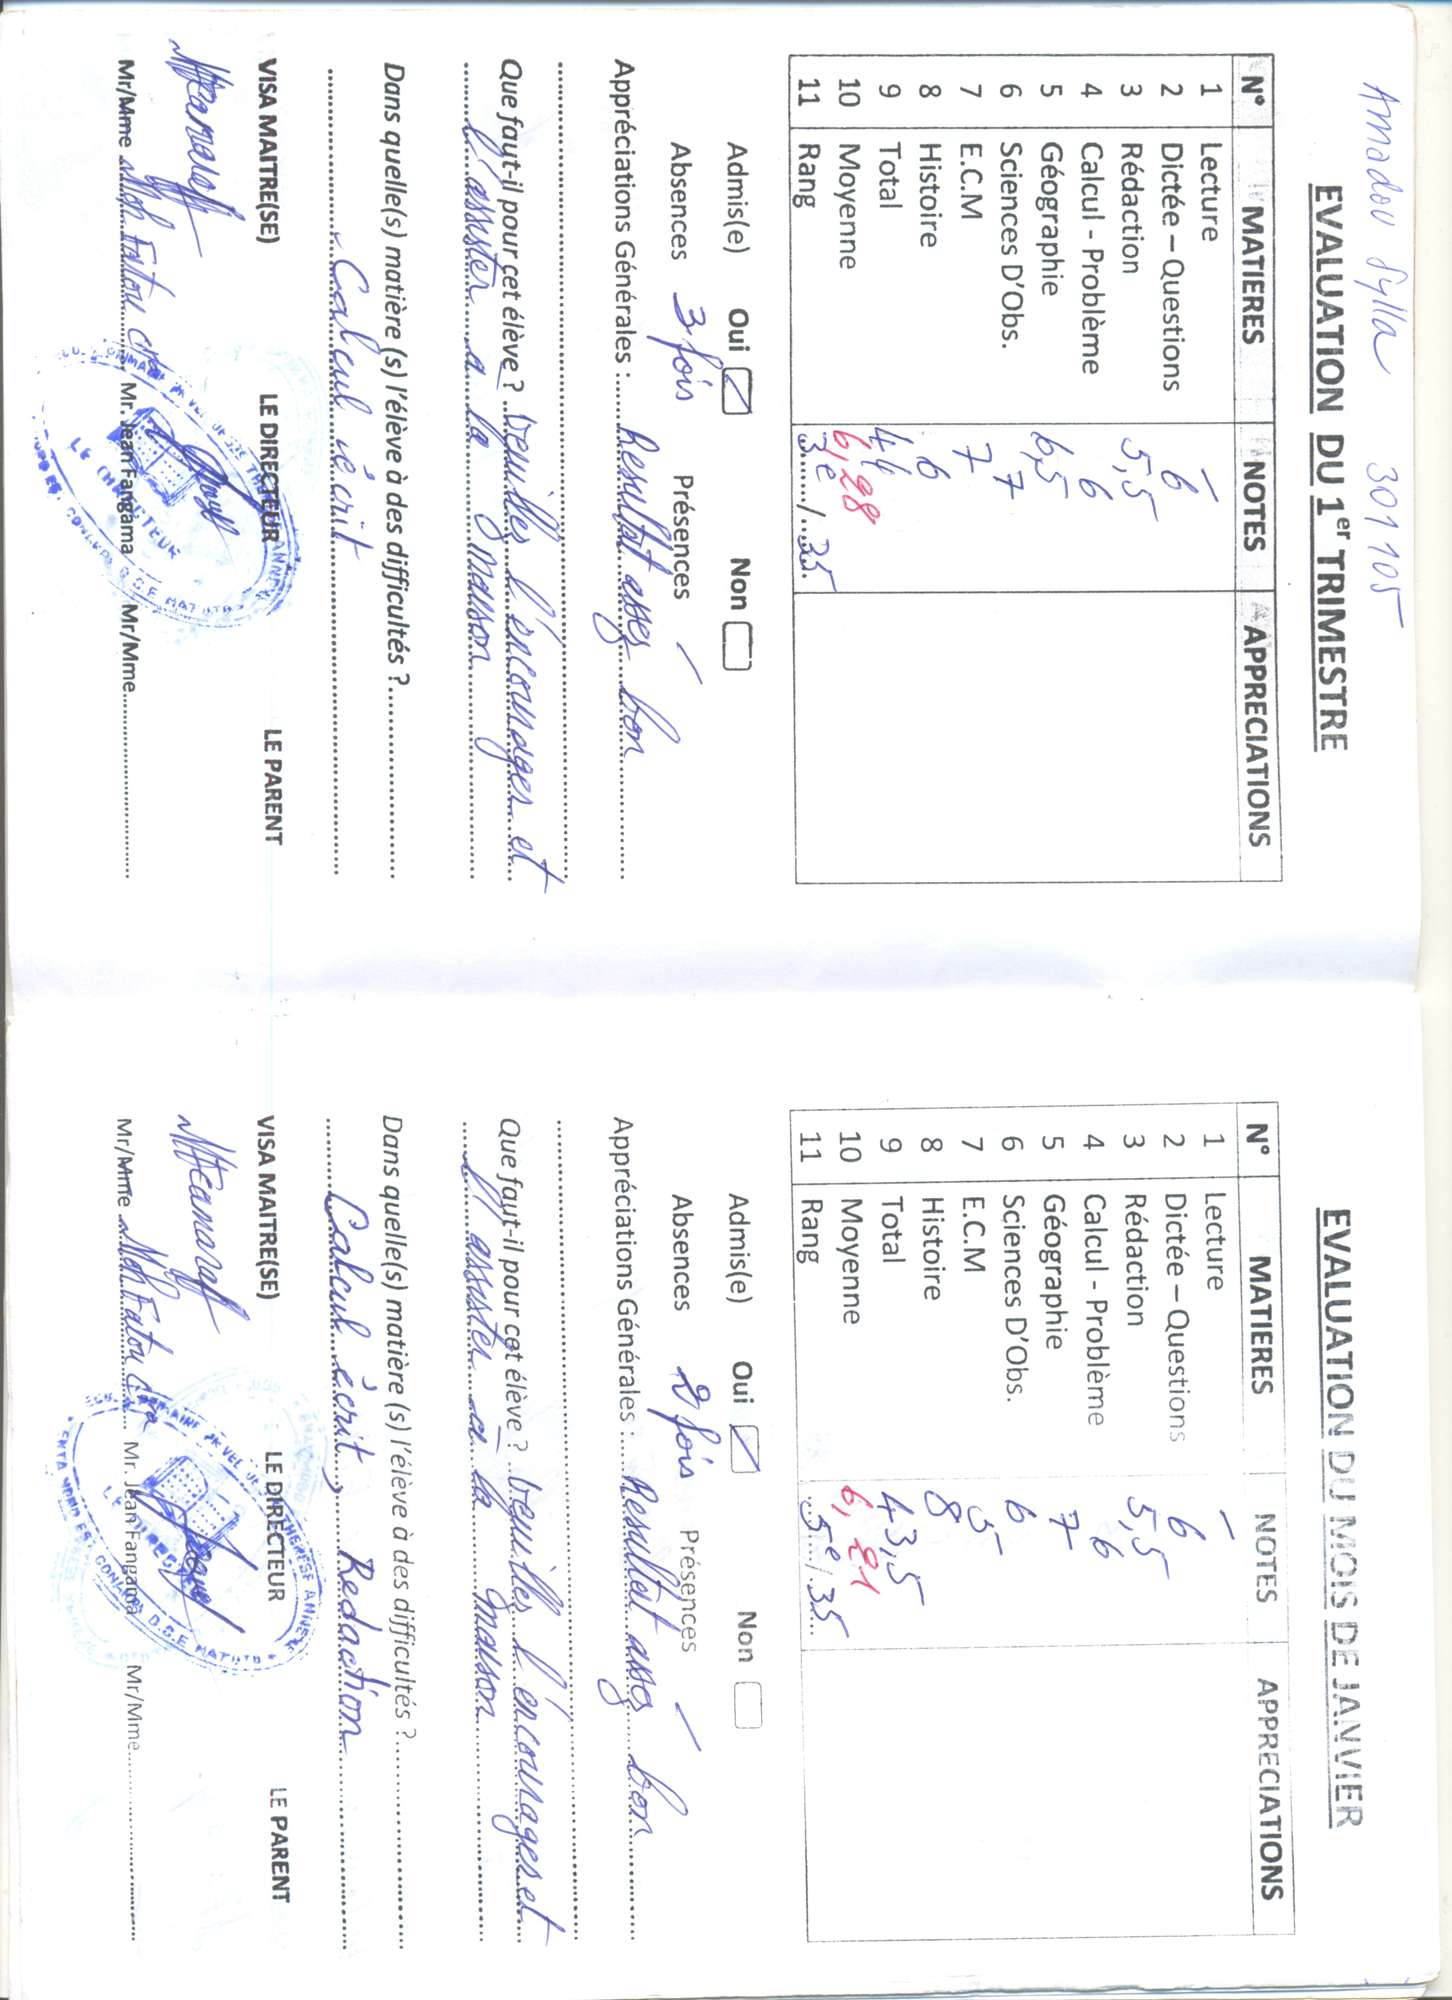 Amadou Sylla 301105
EVALUATION DU 1er TRIMESTRE
N° MATIERES NOTES APPRECIATIONS
1 Lecture –
2 Dictée – Questions 6
3 Rédaction 5,5
4 Calcul - Problème 6
5 Géographie 6,5
6 Sciences D'Obs. 7
7 E.C.M 7
8 Histoire 6
9 Total 44
10 Moyenne 6,28
11 Rang 3e/35
Admis(e) Oui ☑ Non ☐
Absences 3 fois Présences /
Appréciations Générales : Resultat asses bon
Que faut-il pour cet élève ? Veuilles l'encourages et
l'assister a la maison
Dans quelle(s) matière (s) l'élève à des difficultés ?
Calcul écrit
VISA MAITRE(SE) LE DIRECTEUR LE PARENT
Mr/Mme Fatou Mr. Jean Fangama Mr/Mme
EVALUATION DU MOIS DE JANVIER
N° MATIERES NOTES APPRECIATIONS
1 Lecture –
2 Dictée – Questions 6
3 Rédaction 5,5
4 Calcul - Problème 6
5 Géographie 7
6 Sciences D'Obs. 6
7 E.C.M 5
8 Histoire 8
9 Total 43,5
10 Moyenne 6,21
11 Rang 5e/35
Admis(e) Oui ☑ Non ☐
Absences 2 fois Présences /
Appréciations Générales : Resultat asses bon
Que faut-il pour cet élève ? Veuilles l'encourages et
l'assister a la maison
Dans quelle(s) matière (s) l'élève à des difficultés ?
Calcul écrit, Redaction
VISA MAITRE(SE) LE DIRECTEUR LE PARENT
Mr/Mme Fatou Mr. Jean Fangama Mr/Mme